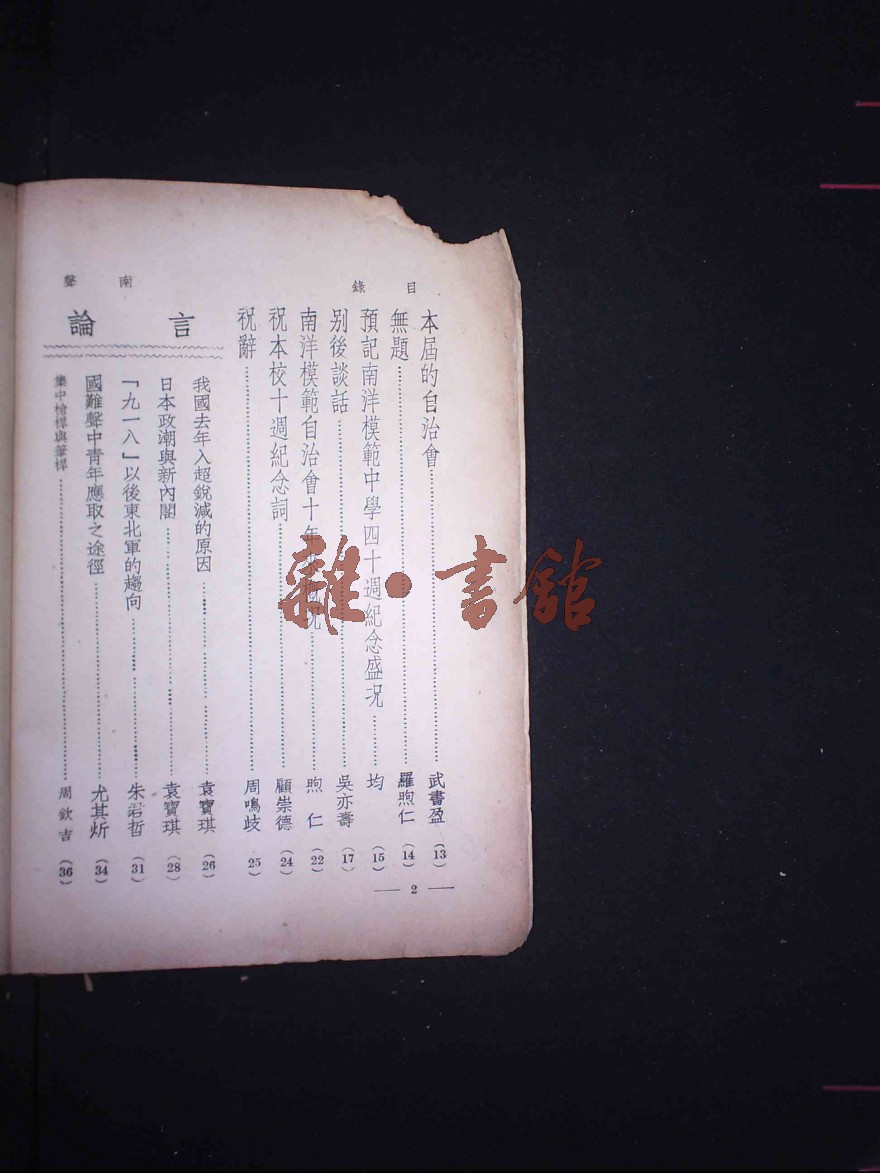 目錄
南聲
本屆的自治會 武書盈 (13)
無題 羅煦仁 (14)
預記南洋模範中學四十週紀念盛況 均 (15)
別後談話 吳亦壽 (17)
南洋模範自治會十年 況 煦仁 (22)
祝本校十週紀念詞 顧崇德 (24)
祝辭 周鳴歧 25)
言論
我國去年入超銳減的原因 袁寶琪 (26)
日本政潮與新內閣 袁寶琪 (28)
「九一八」以後東北軍的趨向 朱君哲 (31)
國難聲中青年應取之途徑 尤其炘 (34)
集中槍桿與筆桿 周欽吉 (36)
— 2 —
雜·書館